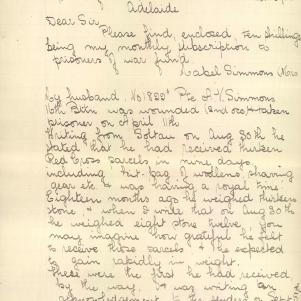 Adelaide
Dear Sir
Please find, enclosed, ten shillings
being my monthly subscription to
prisoners of war fund
Mabel Simmons Mrs
My husband, No 1822 Pte A. V. Simmons
16th Bttn was wounded (2nd occ) & taken
prisoner on April 11th
Writing from Soltau on Aug 30th he
stated that he had received thirteen
Red Cross parcels in nine days,
including kit-bag of woollens, shaving
gear etc & was having a royal time.
Eighteen months ago he weighed thirteen
stone, & when I write that on Aug 30th
he weighed eight stone twelve, you
may imagine how grateful he felt
to receive those parcels & he expected
to gain rapidly in weight.
These were the first he had received
by the way, & was writing an
acknowledgement to the senders on Sept